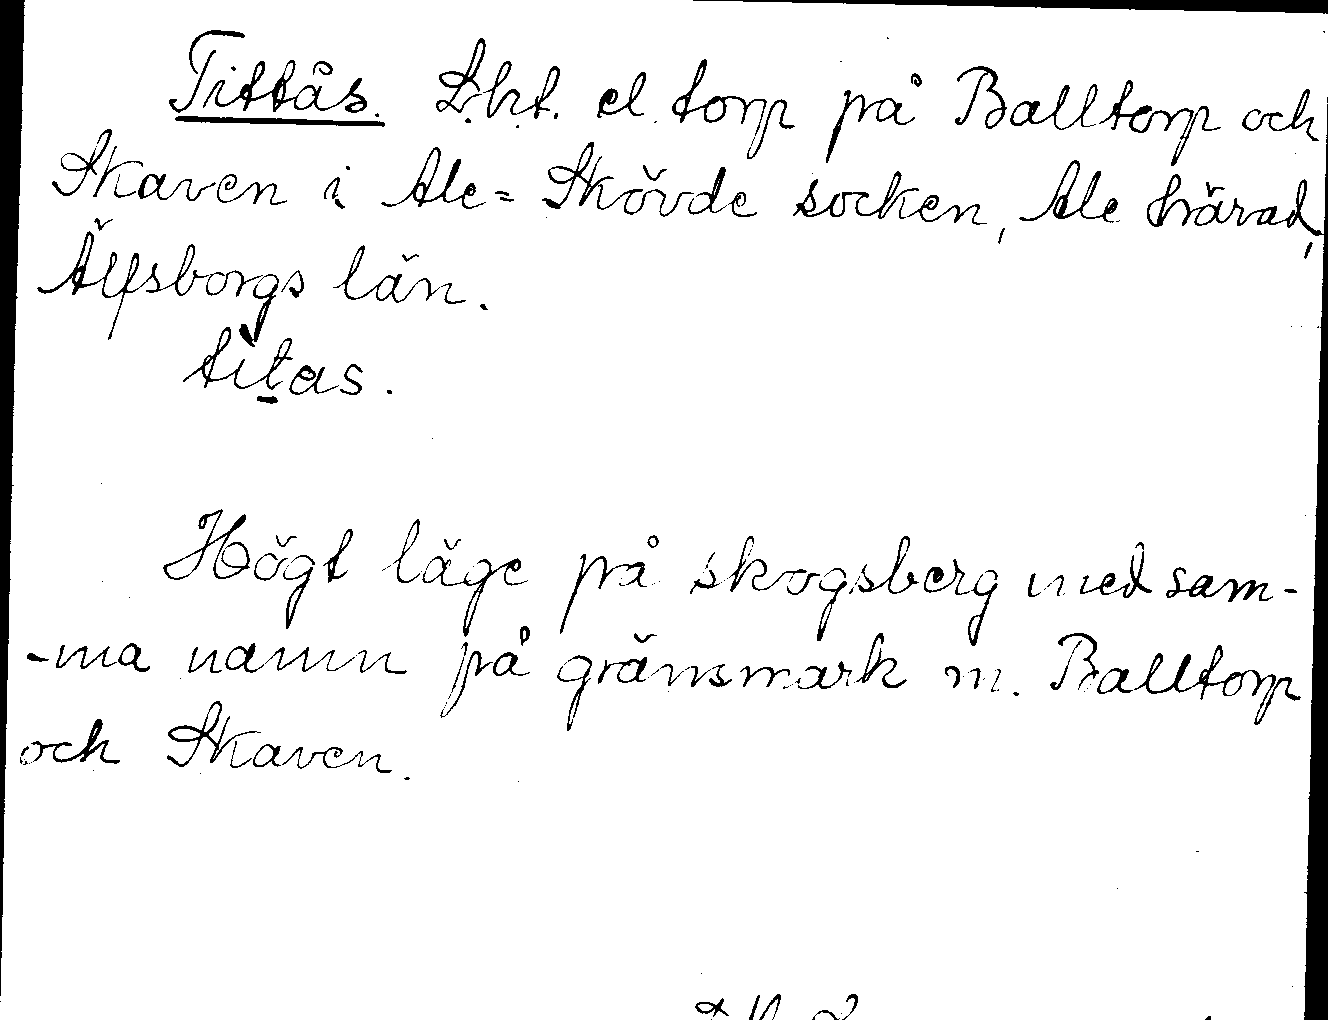 Tittås. Lht. el. torp på Balltorp och
Skaven i Ale=Skövde socken, Ale härad,
Älfsborgs län.
tìt̲as.
Högt läge på skogsberg med sam-
-ma namn på gränsmark m. Balltorp
och Skaven.